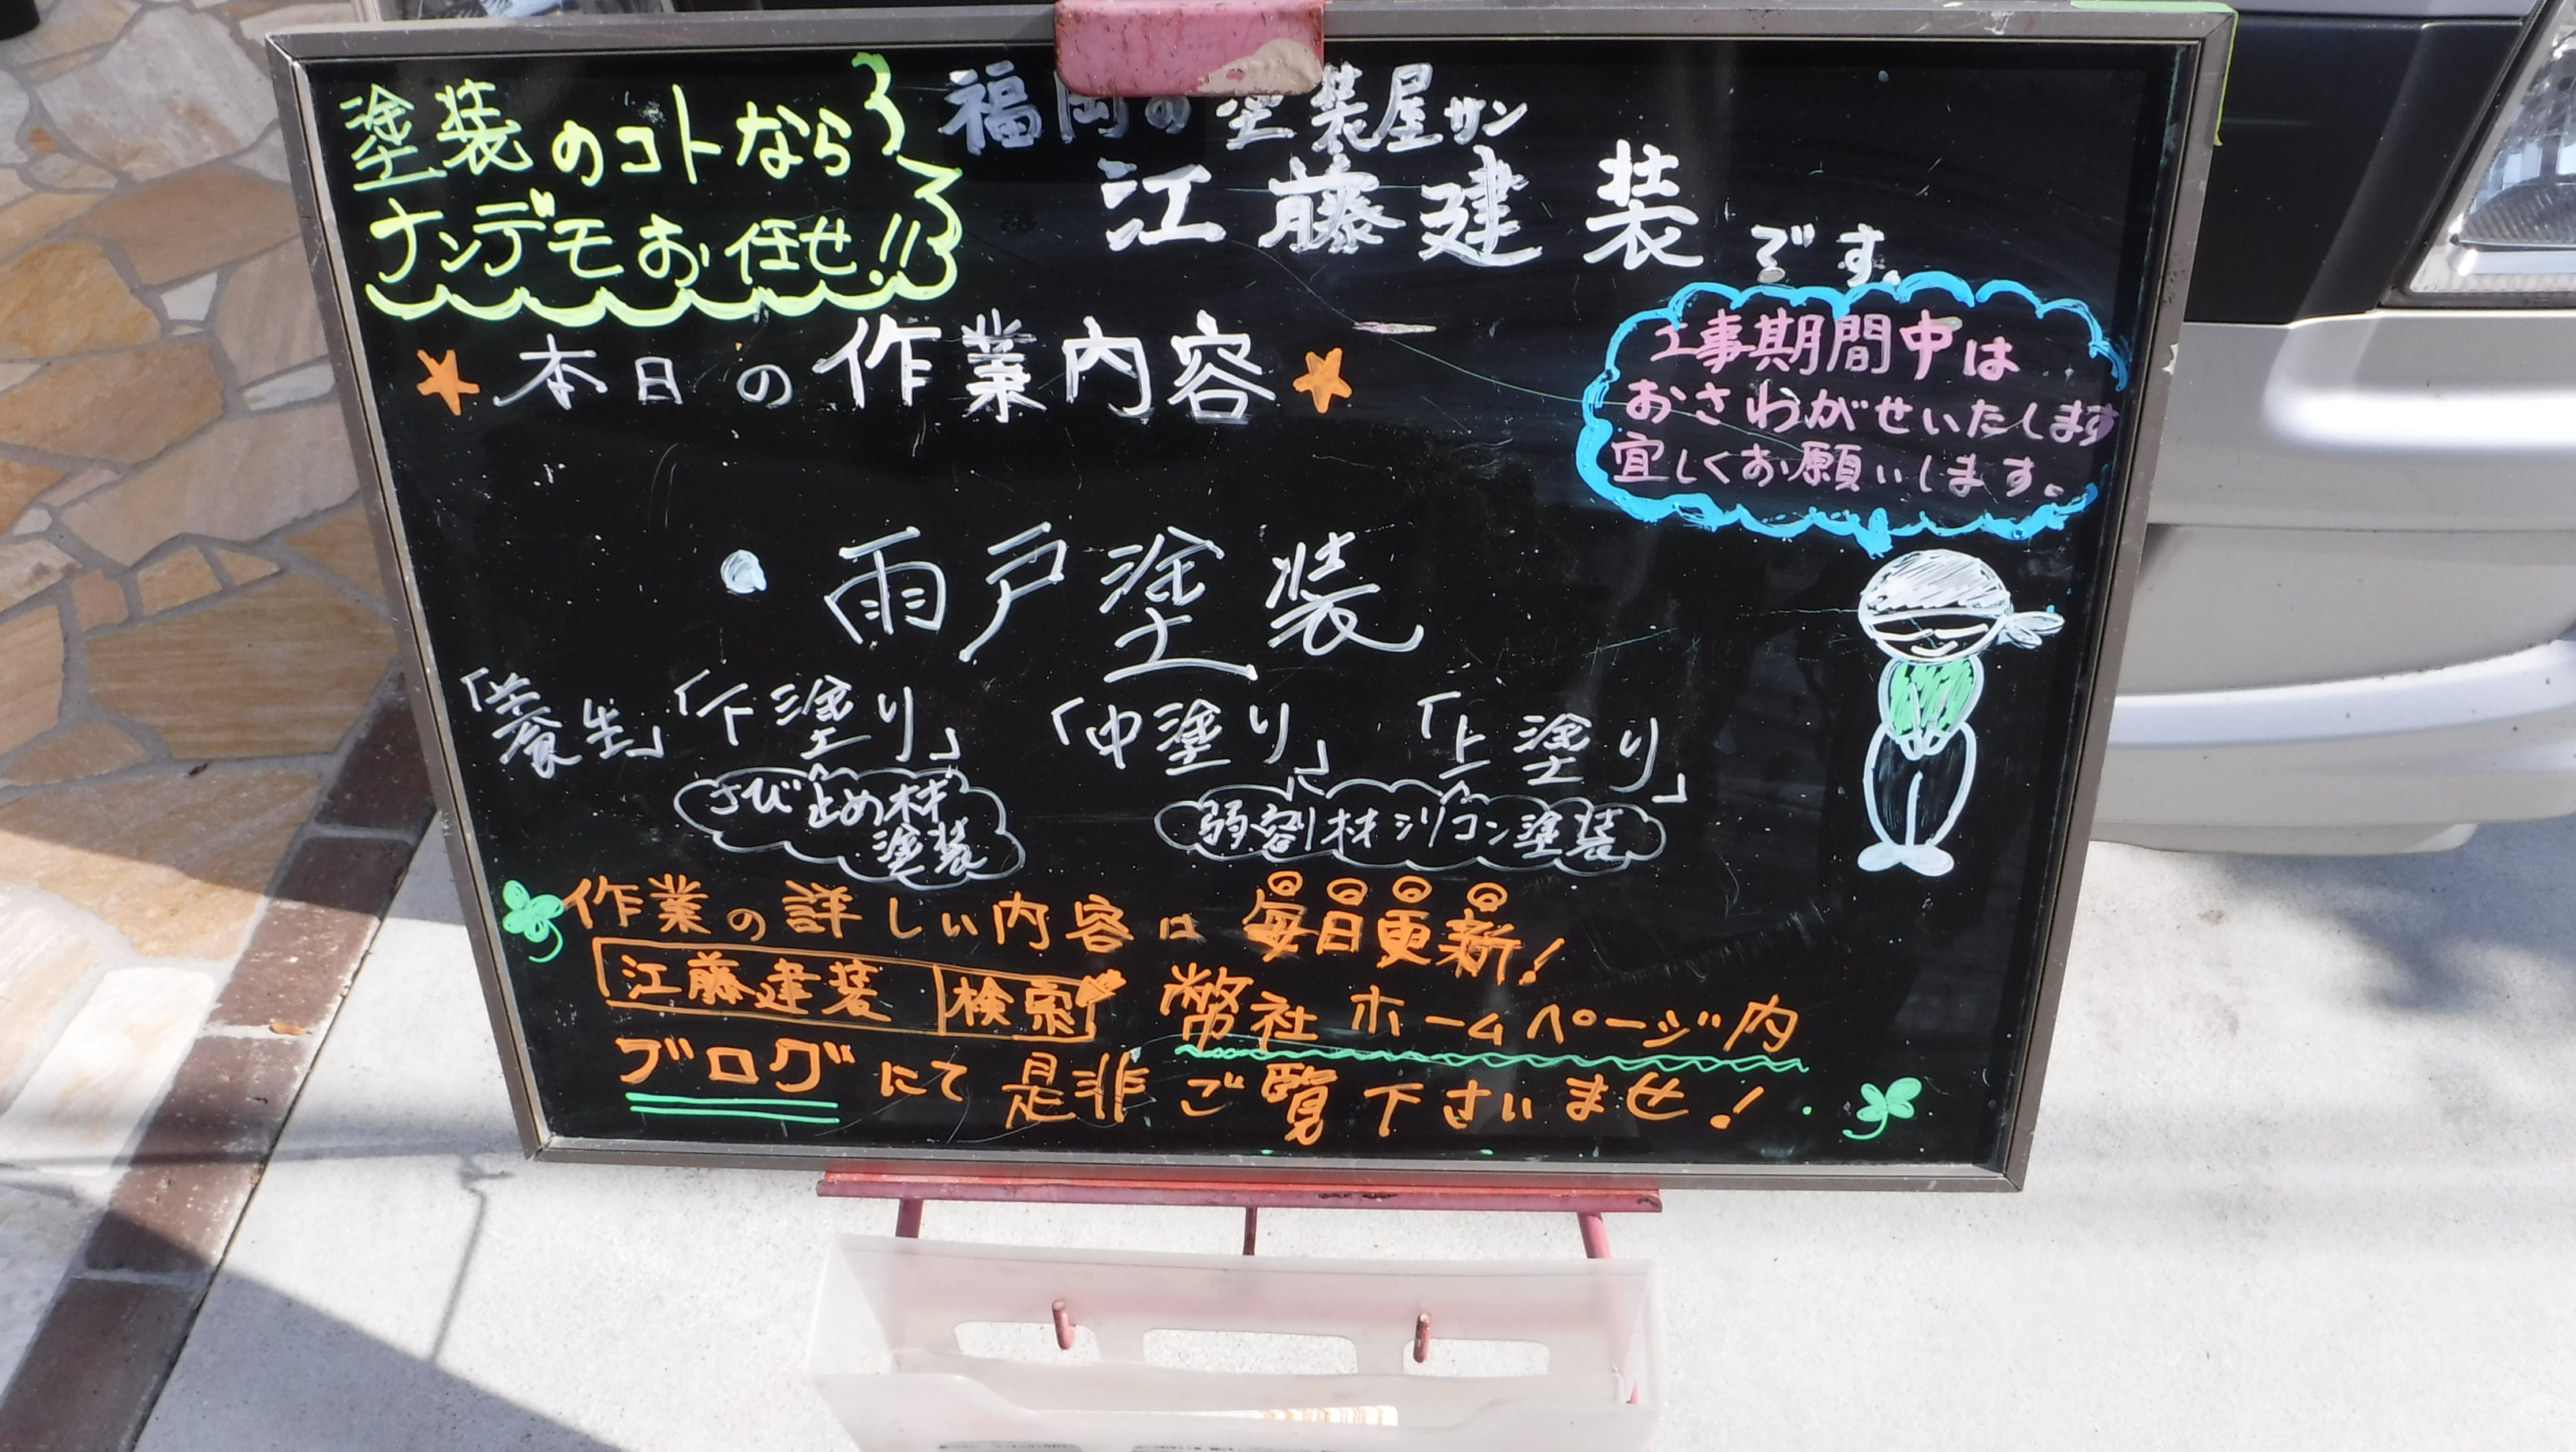 塗装のコトなら
ナンデモお任せ!!
福岡の塗装屋サン
江藤建装です。
★本日の作業内容★
工事期間中は
おさわがせいたします
宜しくお願いします。
・雨戸塗装
「養生」「下塗り」「中塗り」「上塗り」
さび止め材
塗装
弱溶剤材シリコン塗装
作業の詳しい内容は毎日更新!
江藤建装 検索 弊社ホームページ内
ブログにて是非ご覧下さいませ!